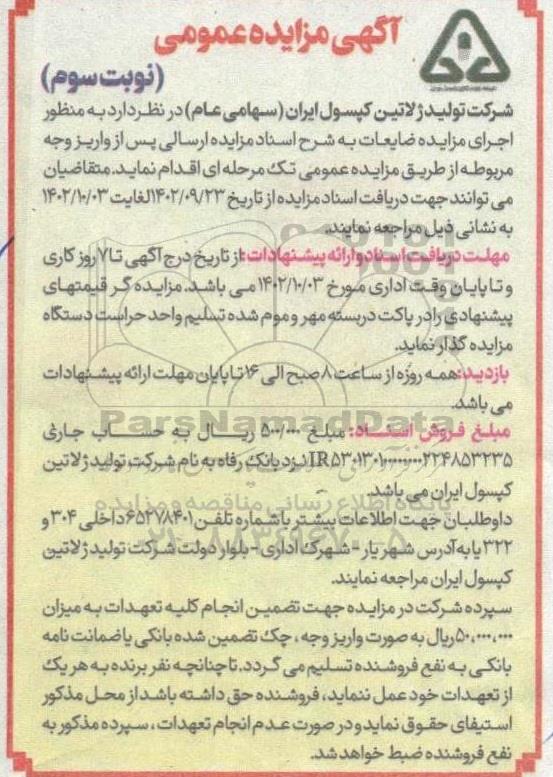 آگهی مزایده عمومی
(نوبت سوم)
شرکت تولید ژلاتین کپسول ایران (سهامی عام) در نظر دارد به منظور
اجرای مزایده ضایعات به شرح اسناد مزایده ارسالی پس از واریز وجه
مربوطه از طریق مزایده عمومی تک مرحله ای اقدام نماید. متقاضیان
می توانند جهت دریافت اسناد مزایده از تاریخ ۱۴۰۲/۰۹/۲۳ لغایت ۱۴۰۲/۱۰/۰۳
به نشانی ذیل مراجعه نمایند.
مهلت دریافت اسناد و ارائه پیشنهادات: از تاریخ درج آگهی تا ۷ روز کاری
و تا پایان وقت اداری مورخ ۱۴۰۲/۱۰/۰۳ می باشد. مزایده گر قیمتهای
پیشنهادی را در پاکت دربسته مهر و موم شده تسلیم واحد حراست دستگاه
مزایده گذار نماید.
بازدید: همه روزه از ساعت ۸ صبح الی ۱۶ تا پایان مهلت ارائه پیشنهادات
می باشد.
مبلغ فروش اسناد: مبلغ ۵۰۰/۰۰۰ ریال به حساب جاری
نزد بانک رفاه به نام شرکت تولید ژلاتین
کپسول ایران می باشد.
داوطلبان جهت اطلاعات بیشتر با شماره تلفن ۶۵۲۷۸۴۰۱ داخلی ۳۰۴ و
۳۲۲ یا به آدرس شهریار - شهرک اداری - بلوار دولت شرکت تولید ژلاتین
کپسول ایران مراجعه نمایند.
سپرده شرکت در مزایده جهت تضمین انجام کلیه تعهدات به میزان
۵۰،۰۰۰،۰۰۰ ریال به صورت واریز وجه ، چک تضمین شده بانکی یا ضمانت نامه
بانکی به نفع فروشنده تسلیم می گردد. تا چنانچه نفر برنده به هر یک
از تعهدات خود عمل ننماید، فروشنده حق داشته باشد از محل مذکور
استیفای حقوق نماید و در صورت عدم انجام تعهدات ، سپرده مذکور به
نفع فروشنده ضبط خواهد شد.
ParsNamadData
پایگاه اطلاع رسانی مناقصه و مزایده
۰۲۱-۸۸۳۴۹۶۷۰-۵